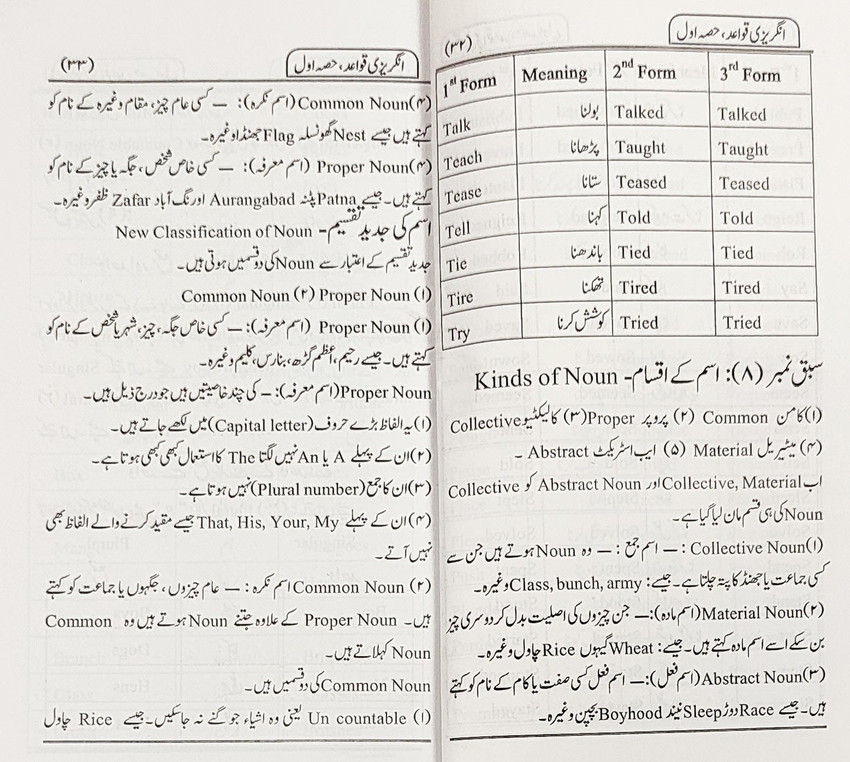 انگریزی قواعد، حصہ اول (۳۲)
1st Form Meaning 2nd Form 3rd Form
Talk بولنا Talked Talked
Teach پڑھانا Taught Taught
Tease ستانا Teased Teased
Tell کہنا Told Told
Tie باندھنا Tied Tied
Tire تھکنا Tired Tired
Try کوشش کرنا Tried Tried
سبق نمبر (۸): اسم کے اقسام- Kinds of Noun
(۱) کامن Common (۲) پروپر Proper (۳) کالیکٹیو Collective
(۴) میٹیریل Material (۵) ایب اسٹریکٹ Abstract ۔
اب Collective, Material اور Abstract Noun کو Collective
Noun کی ہی قسم مان لیا گیا ہے۔
(۱) Collective Noun :— اسم جمع :— وہ Noun ہوتے ہیں جن سے
کسی جماعت یا جھنڈ کا پتہ چلتا ہے۔ جیسے: Class, bunch, army وغیرہ۔
(۲) Material Noun (اسم مادہ):— جن چیزوں کی اصلیت بدل کر دوسری چیز
بن سکے اسے اسم مادہ کہتے ہیں۔ جیسے: Wheat گیہوں Rice چاول وغیرہ۔
(۳) Abstract Noun (اسم فعل):— اسم فعل کسی صفت یا کام کے نام کو کہتے
ہیں۔ جیسے Race دوڑ Sleep نیند Boyhood بچپن وغیرہ۔
انگریزی قواعد، حصہ اول (۳۳)
(۳) Common Noun (اسم نکرہ):— کسی عام چیز، مقام وغیرہ کے نام کو
کہتے ہیں جیسے Nest گھونسلہ Flag جھنڈا وغیرہ۔
(۴) Proper Noun (اسم معرفہ):— کسی خاص شخص، جگہ یا چیز کے نام کو
کہتے ہیں۔ جیسے Patna پٹنہ Aurangabad اورنگ آباد Zafar ظفر وغیرہ۔
اسم کی جدید تقسیم- New Classification of Noun
جدید تقسیم کے اعتبار سے Noun کی دو قسمیں ہوتی ہیں۔
(۱) Proper Noun (۲) Common Noun
(۱) Proper Noun (اسم معرفہ):— کسی خاص جگہ، چیز، شہر یا شخص کے نام کو
کہتے ہیں۔ جیسے رحیم، اعظم گڑھ، بنارس، کلیم وغیرہ۔
Proper Noun (اسم معرفہ):— کی چند خاصیتیں ہیں جو درج ذیل ہیں۔
(۱) یہ الفاظ بڑے حروف (Capital letter) میں لکھے جاتے ہیں۔
(۲) ان کے پہلے A یا An نہیں لگتا The کا استعمال کبھی کبھی ہوتا ہے۔
(۳) ان کا جمع (Plural number) نہیں ہوتا ہے۔
(۴) ان کے پہلے That, His, Your, My جیسے مقید کرنے والے الفاظ بھی
نہیں آتے۔
(۲) Common Noun اسم نکرہ :— عام چیزوں، جگہوں یا جماعت کو کہتے
ہیں۔ Proper Noun کے علاوہ جتنے Noun ہوتے ہیں وہ Common
Noun کہلاتے ہیں۔
Common Noun کی دو قسمیں ہیں۔
(۱) Un countable یعنی وہ اشیاء جو گنے نہ جاسکیں۔ جیسے Rice چاول